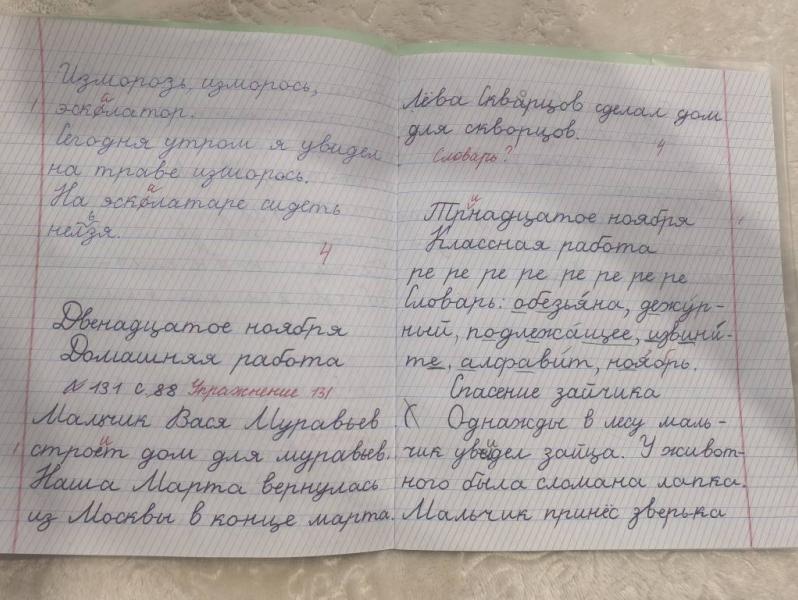 Изморозь, изморось,
эскалатор.
Сегодня утром я увидел
на траве изморось.
На эскалатаре сидеть
нельзя.
4
Двенадцатое ноября
Домашняя работа
№ 131 с. 88 Упражнение 131
Мальчик Вася Муравьев
строит дом для муравьев.
Наша Марта вернулась
из Москвы в конце марта.
Лёва Скварцов сделал дом
для скворцов.
Словарь? 4
Тринадцатое ноября
Классная работа
ре ре ре ре ре ре ре ре
Словарь: обезьяна, дежур-
ный, подлежащее, извини-
те, алфавит, ноябрь.
Спасение зайчика
Однажды в лесу маль-
чик увидел зайца. У живот-
ного была сломана лапка.
Мальчик принёс зверька